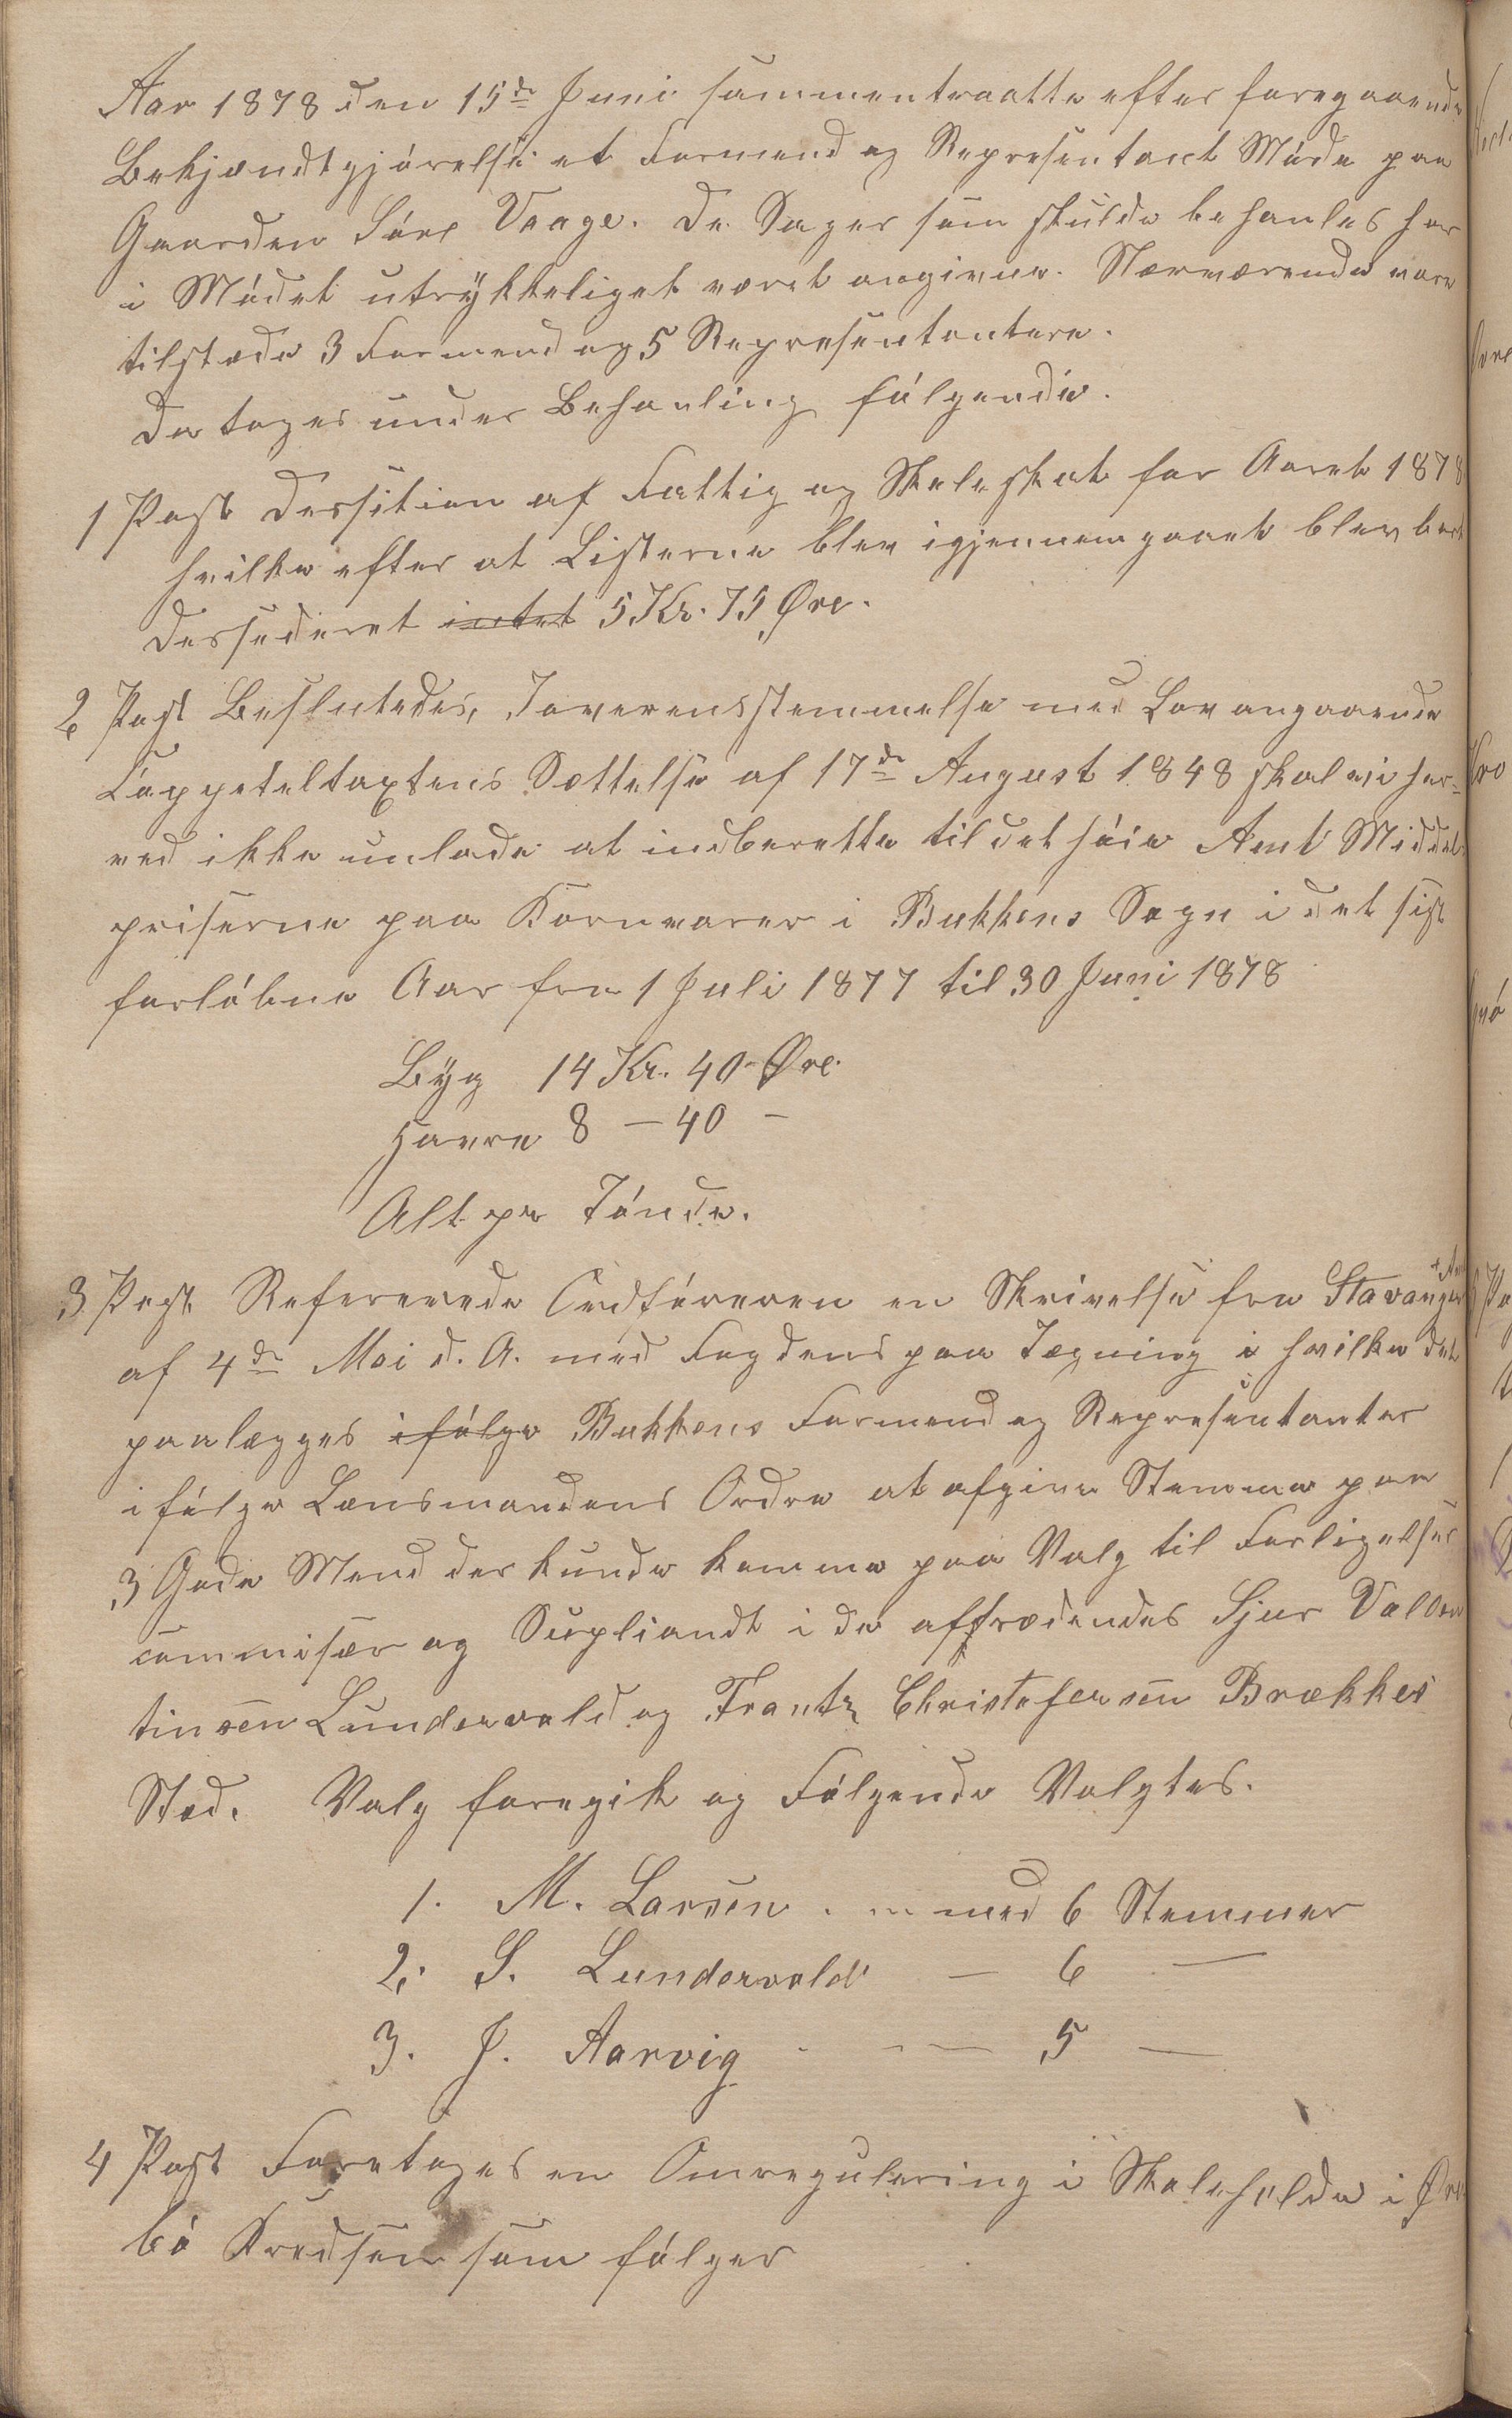 Aar 1878 den 15de Juni sammentraatte efter foregaaende
Bekjændtgjórelse et Formend og Representant Móde paa
Gaarden Sóre Vaage. De Sager som skulde behanles har
i Módet utrÿkkeliget været angivne. Nærværende vare
tilstede 3 Formend og 5 Representantere.
Da toges under Behanling fólgende.
1 Post Dessition af Fattig og Skoleskat for Aaret 1878
hvilke efter at Listerne blev igjennemgaaet blev bort
Dessederet intet 5 Kr. 75 Øre.
2 Post Besluttedes, Ioverensstemmelse med Lov angaaende
Cappeteltaxtens Sættelse af 17de August 1848 skal vi her=
ved ikke unlade at indberette til det hóie Amt Middel
priserne paa Kornvarer i Bukkens Sogn i det sist
forlóbne Aar fra 1 Juli 1877 til 30 Juni 1878
Bÿg 14 Kr. 40 Øre.
Havre 8 — 40 —
Alt pr Tónde.
3 Post Refererede Ordfóreren en Skrivelse fra Stavanger
af 4de Mai d. A. med Fogdens paa Tegning i hvilke det
paalegges ifólge Bukkens Formend og Representanter
ifólge Lensmandens Ordre at afgive Stemme paa
3 Gode Mend der kunde komme paa Valg til Forligelses
commisær og Supliandt i de aftrædendes Sjur Valen
tinsen Lundervold og Frantz Christofersen Brækkes
Sted. Valg foregik og Fólgende Valgtes.
1. M. Larsen . — med 6 Stemmer
2. S. Lundervold — 6 —
3. J. Aarvig — 5 —
4 Post Foretoges en Omregulering i Skoleholdet i
bó Kredsen som fólger